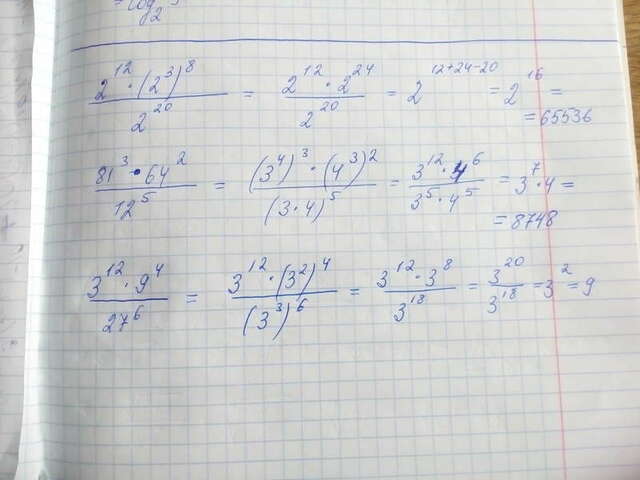 = log₂ 3
2¹² · (2³)⁸ / 2²⁰ = 2¹² · 2²⁴ / 2²⁰ = 2¹²⁺²⁴⁻²⁰ = 2¹⁶ =
= 65536
81³ · 64² / 12⁵ = (3⁴)³ · (4³)² / (3·4)⁵ = 3¹² · 4⁶ / 3⁵ · 4⁵ = 3⁷ · 4 =
= 8748
3¹² · 9⁴ / 27⁶ = 3¹² · (3²)⁴ / (3³)⁶ = 3¹² · 3⁸ / 3¹⁸ = 3²⁰ / 3¹⁸ = 3² = 9